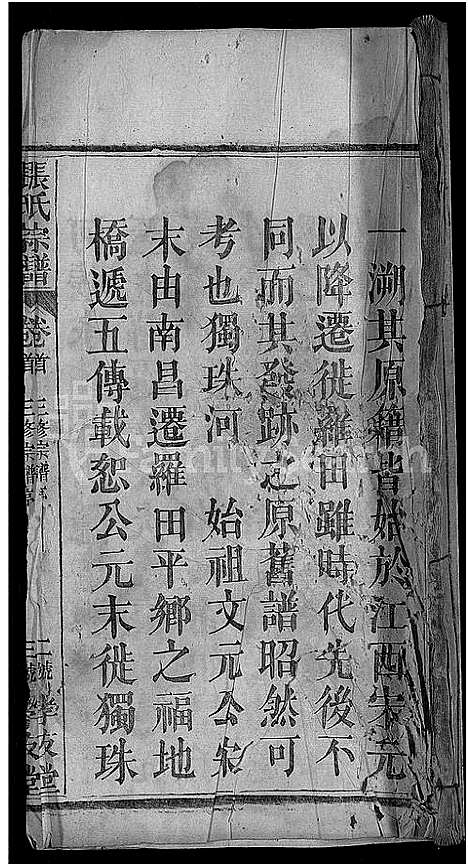 一溯其原籍皆始於江西宋元
以降遷徙羅田雖時代先後不
同而其發跡之原舊譜昭然可
考也獨珠河　始祖文元公宋
末由南昌遷羅田平鄉之福地
橋遞五傳載恕公元末徙獨珠
張氏宗譜 卷首 三修宗譜序 孝友堂